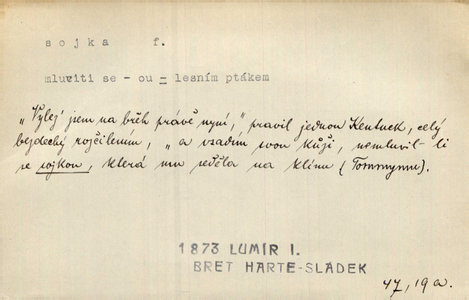 sojka f.
mluviti se - ou = lesním ptákem
„Vylej' jsem na břeh právě nyní,“ pravil jednou Kentuck, celý
bezdechý rozčilením, „a vsadím svou kůži, nemluvil-li
se sojkou, která mu seděla na klínu (Tommymu).
1873 LUMÍR I.
BRET HARTE-SLÁDEK
47, 19a.